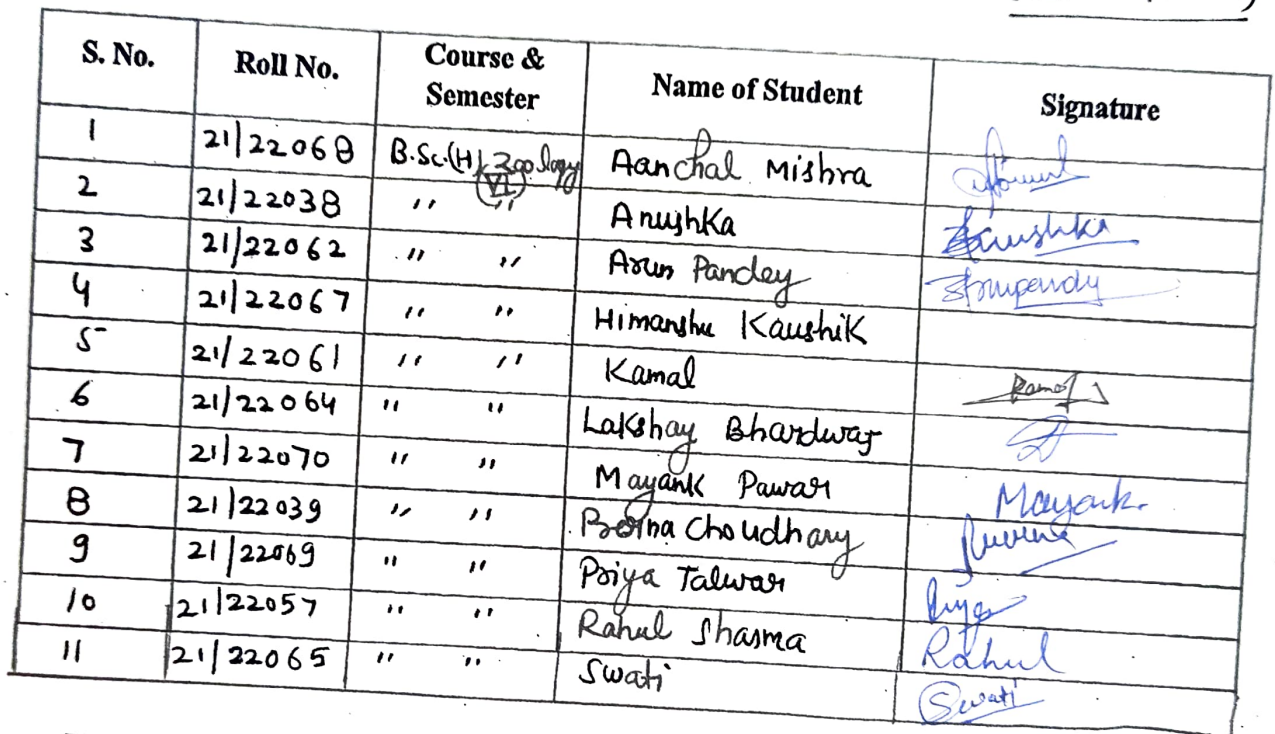 S. No. Roll No. Course & Semester Name of Student Signature
1 21/22068 B.Sc.(H) Zoology (VI) Aanchal Mishra
2 21/22038 " " Anushka Anushka
3 21/22062 " " Arun Pandey Arunpandey
4 21/22067 " " Himanshu Kaushik
5 21/22061 " " Kamal Kamal
6 21/22064 " " Lakshay Bhardwaj
7 21/22070 " " Mayank Pawar Mayank.
8 21/22039 " " Choudhary
9 21/22069 " " Priya Talwar Priya
10 21/22057 " " Rahul Sharma Rahul
11 21/22065 " " Swati Swati